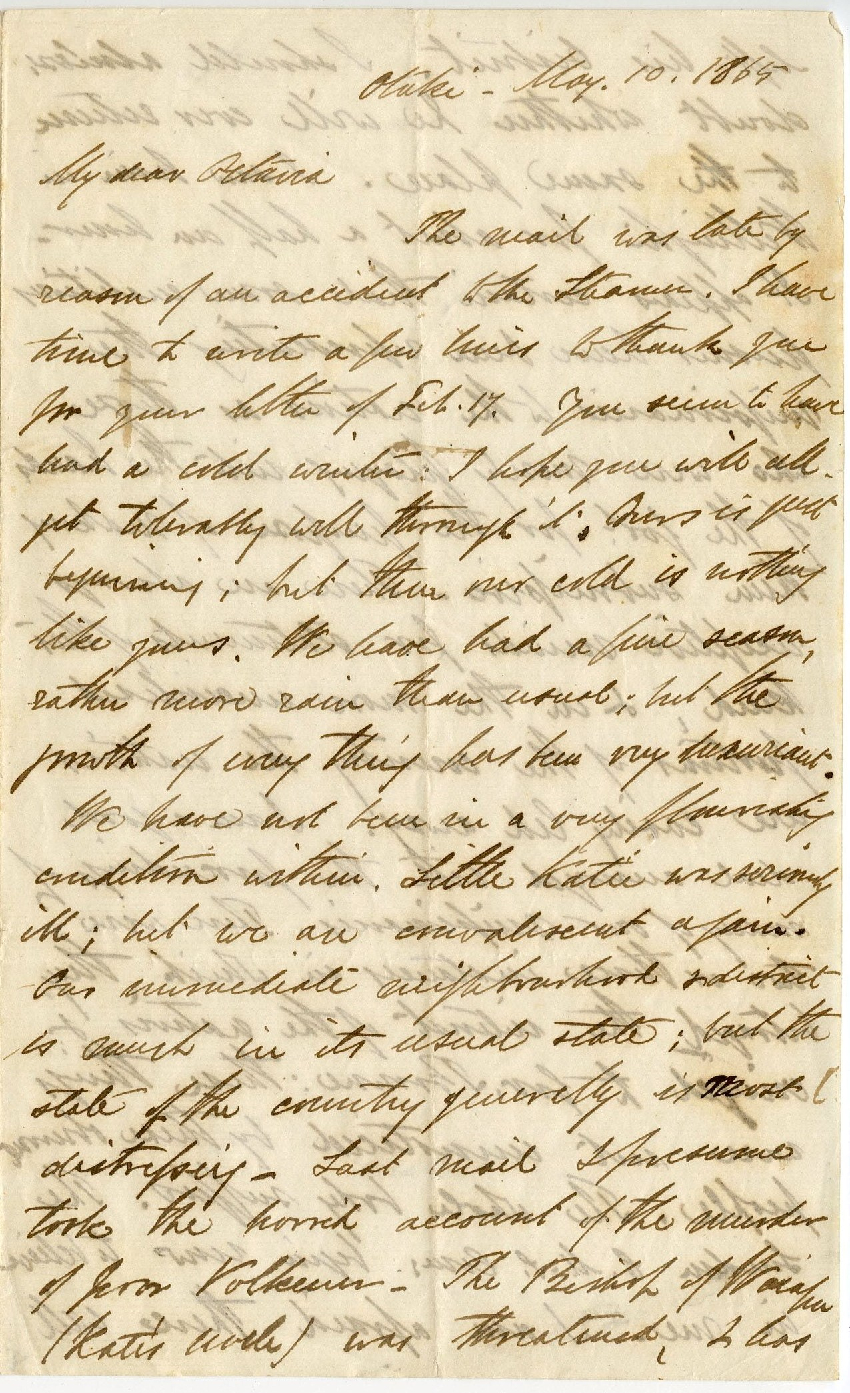 Otaki - May. 10. 1865
My dear Octavia
The mail was late by
reason of an accident to the Steamer. I have
time to write a few lines to thank you
for your letter of Feb. 17. You seem to have
had a cold winter: I hope you will all
get tolerably well through it. Ours is just
beginning; but then our cold is nothing
like yours. We have had a fine season,
rather more rain than usual; but the
growth of every thing has been very luxuriant.
We have not been in a very flourishing
condition within. Little Katie was seriously
ill; but we are convalescent again.
Our immediate neighbourhood & district
is much in its usual state; but the
state of the country generally is most
distressing - Last mail I presume
took the horrid account of the murder
of poor Volkner - The Bishop of Waiapu
(Katie's uncle) was threatened, & has